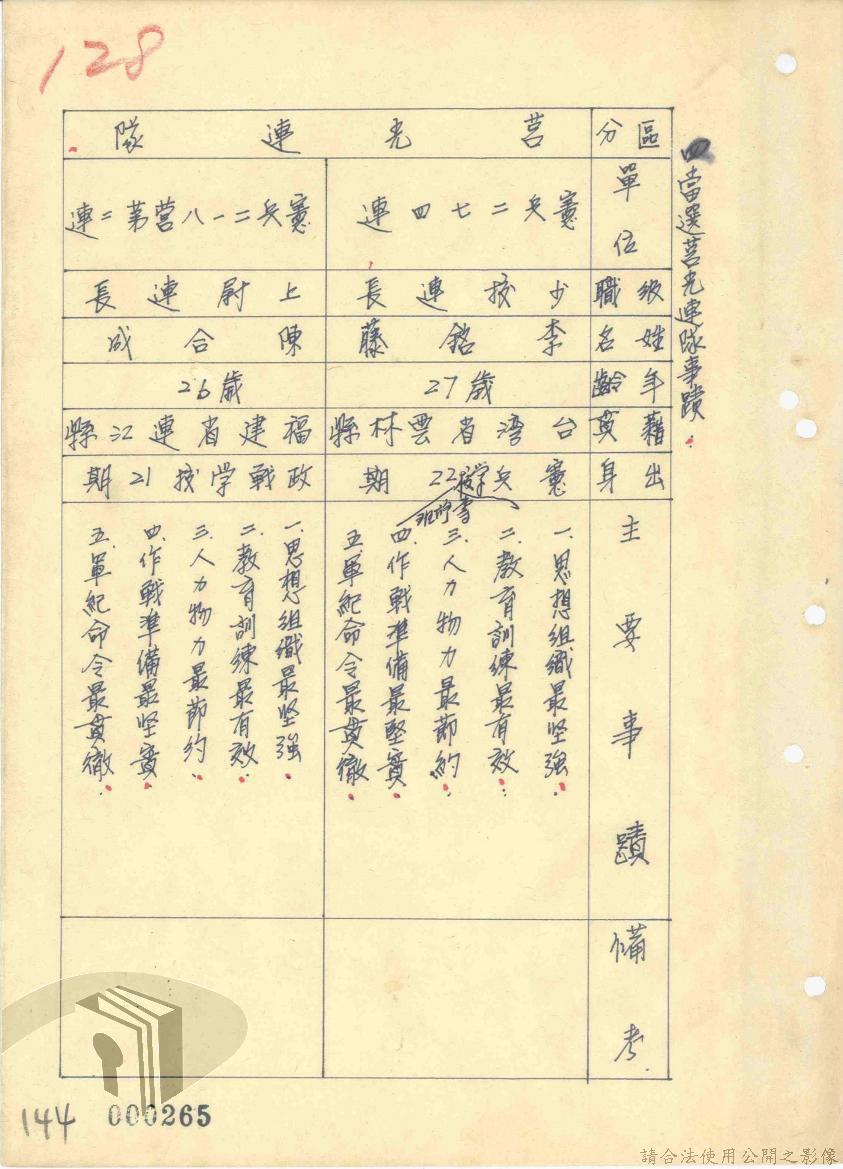 128
四當選莒光連隊事蹟：
區分
莒光連隊
單位
憲兵二七四連
憲兵二一八營第二連
級職
少校連長
上尉連長
姓名
李銘藤
陳合成
年齡
27歲
26歲
藉貫
台湾省雲林縣
福建省連江縣
出身
憲兵学校
22期
政戰学校21期
主要事蹟
一.思想組織最坚強.
二.教育訓練最有效.
三.人力物力最節約.
四.作戰準備最堅實.
五.軍紀命令最貫徹.
一.思想組織最坚強.
二.教育訓練最有效.
三.人力物力最節約.
四.作戰準備最坚實.
五.軍紀命令最貫徹.
備考
144
000265
請合法使用公開之影像